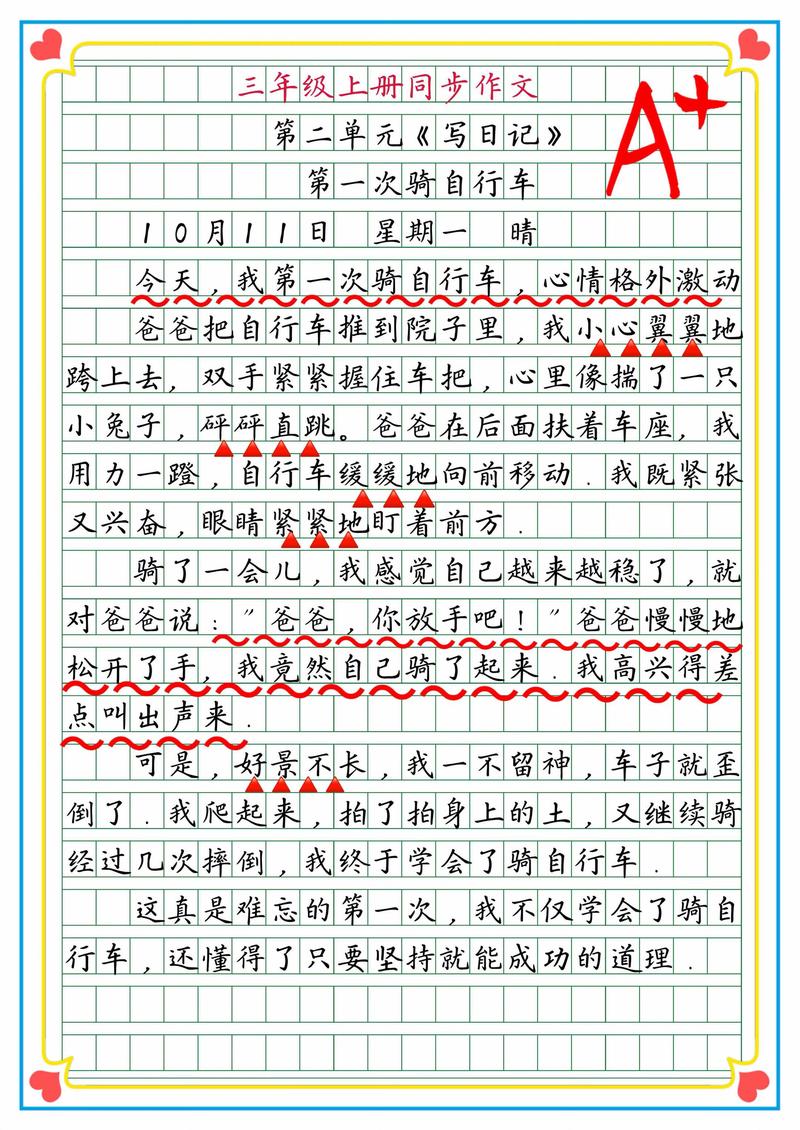 三年级上册同步作文
A+
第二单元《写日记》
第一次骑自行车
10月11日 星期一 晴
今天，我第一次骑自行车，心情格外激动
爸爸把自行车推到院子里，我小心翼翼地
跨上去，双手紧紧握住车把，心里像揣了一只
小兔子，砰砰直跳。爸爸在后面扶着车座，我
用力一蹬，自行车缓缓地向前移动．我既紧张
又兴奋，眼睛紧紧地盯着前方．
骑了一会儿，我感觉自己越来越稳了，就
对爸爸说："爸爸，你放手吧！"爸爸慢慢地
松开了手，我竟然自己骑了起来．我高兴得差
点叫出声来．
可是，好景不长，我一不留神，车子就歪
倒了．我爬起来，拍了拍身上的土，又继续骑
经过几次摔倒，我终于学会了骑自行车．
这真是难忘的第一次，我不仅学会了骑自
行车，还懂得了只要坚持就能成功的道理．